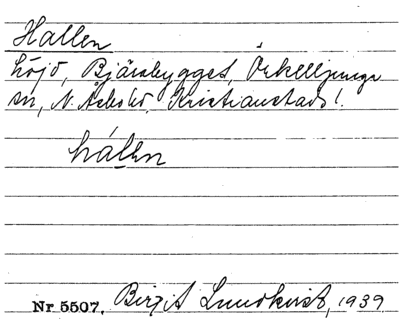 Hallen
höjd, Bjärabygget, Örkelljunga
sn, N. Åsbo hd. Kristianstads l.
hálen
Nr 5507. Birgit Lundkvist, 1939